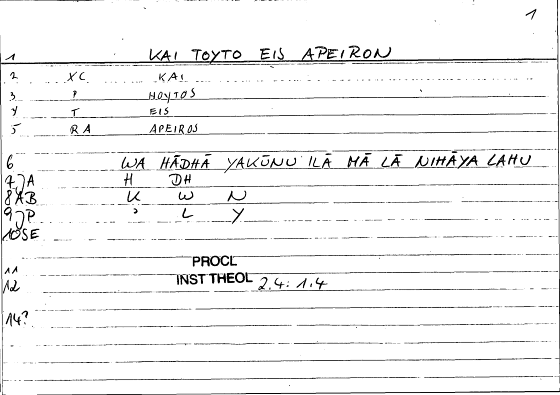 1
1 KAI TOYTO EIS APEIRON
2 XC KAI
3 P HOYTOS
4 T EIS
5 RA APEIROS
6 WA HĀDHĀ YAKŪNU ILĀ MĀ LĀ NIHĀYA LAHU
7 JA H DH
8 AB K W N
9 JP ʾ L Y
10 SE
11 PROCL
12 INST THEOL 2.4: 1.4
14?